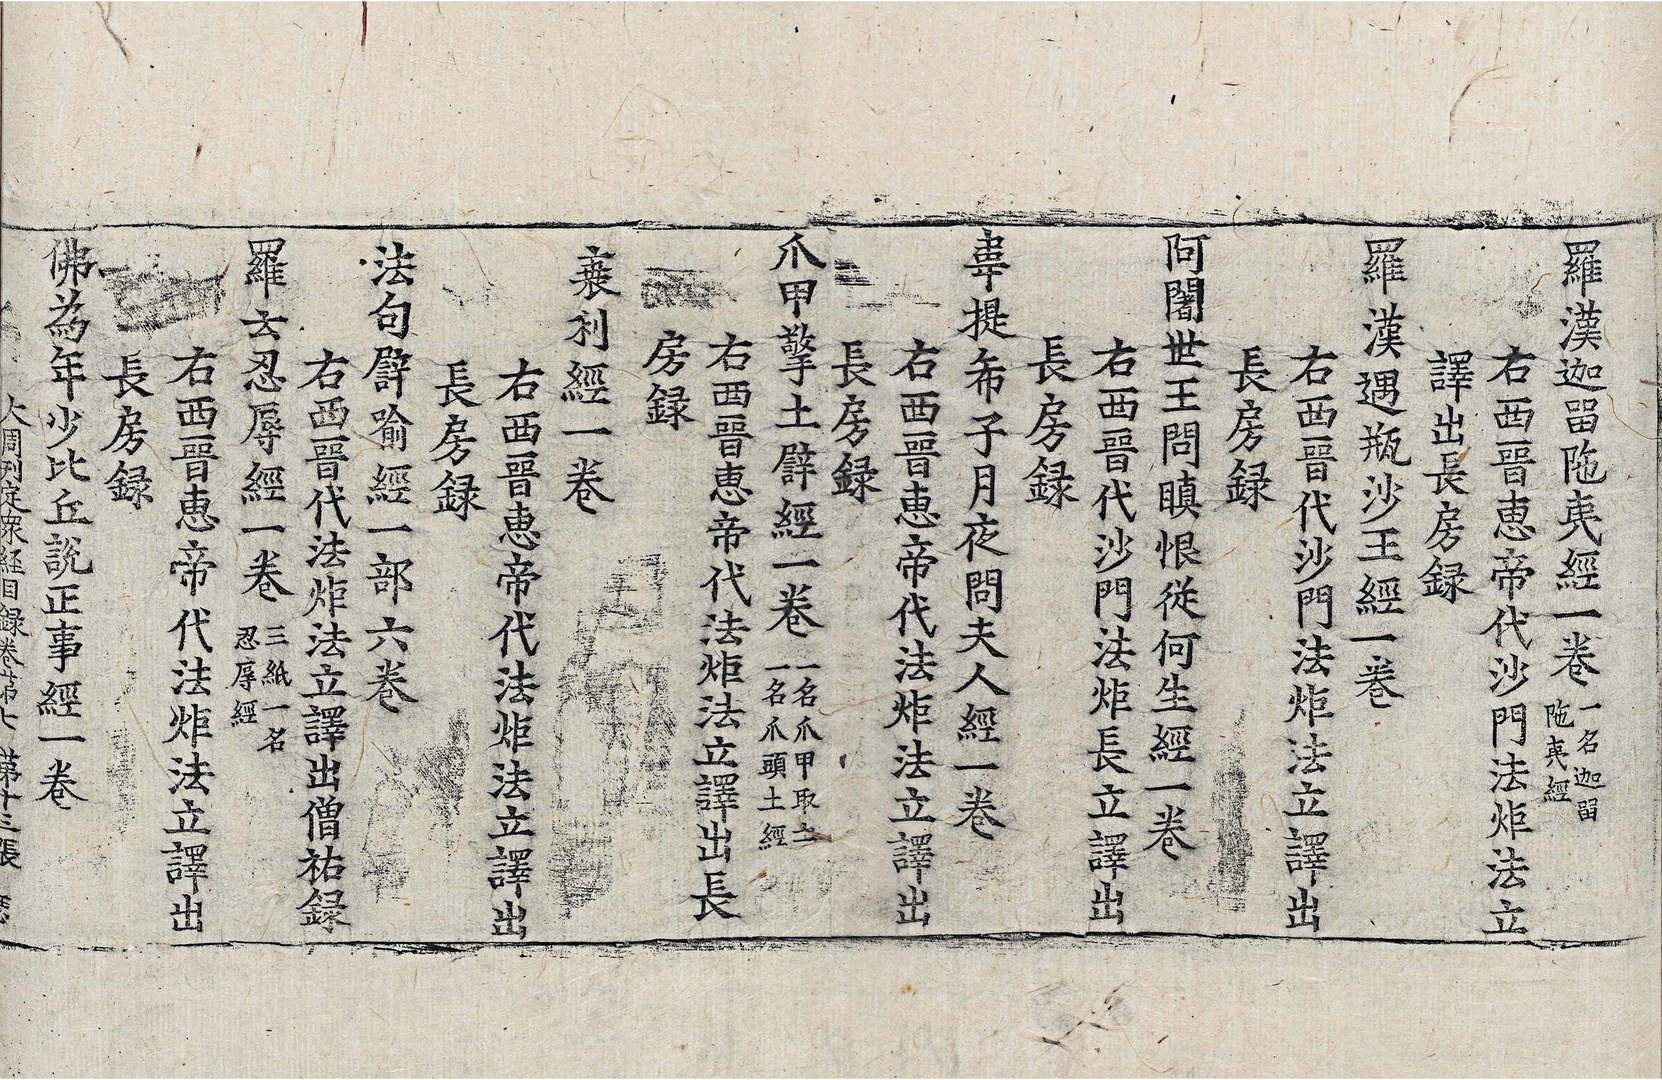 羅漢迦留陁夷經一卷 一名迦留陁夷經
右西晉惠帝代沙門法炬法立
譯出長房録
羅漢遇瓶沙王經一卷
右西晉代沙門法炬法立譯出
長房録
阿闍世王問瞋恨從何生經一卷
右西晉代沙門法炬長立譯出
長房録
韋提希子月夜問夫人經一卷
右西晉惠帝代法炬法立譯出
長房録
爪甲擎土譬經一卷 一名爪甲取土 一名爪頭土經
右西晉惠帝代法炬法立譯出長
房録
衰利經一卷
右西晉惠帝代法炬法立譯出
長房録
法句譬喻經一部六卷
右西晉代法炬法立譯出僧祐録
羅云忍辱經一卷 三紙一名忍辱經
右西晉惠帝代法炬法立譯出
長房録
佛為年少比丘說正事經一卷
大周刊定眾經目録卷第七 第十三張